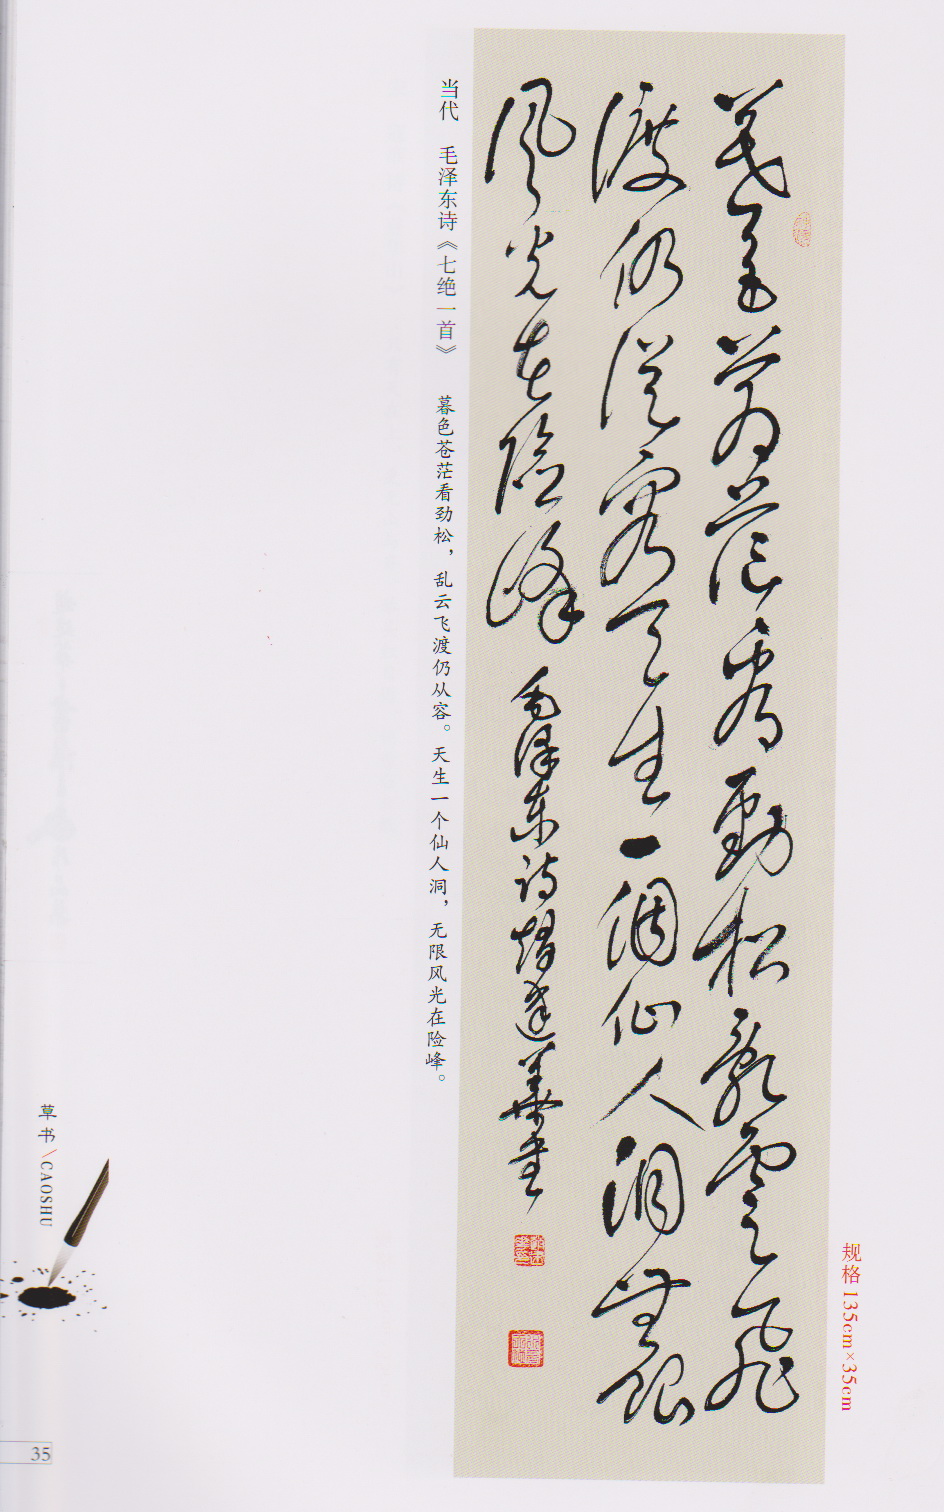 暮色苍茫看劲松乱云飞
渡仍从容天生一個仙人洞無限
风光在险峰
毛泽东诗
当代 毛泽东诗《七绝一首》 暮色苍茫看劲松，乱云飞渡仍从容。天生一个仙人洞，无限风光在险峰。
规格 135cm×35cm
草书/CAOSHU
35